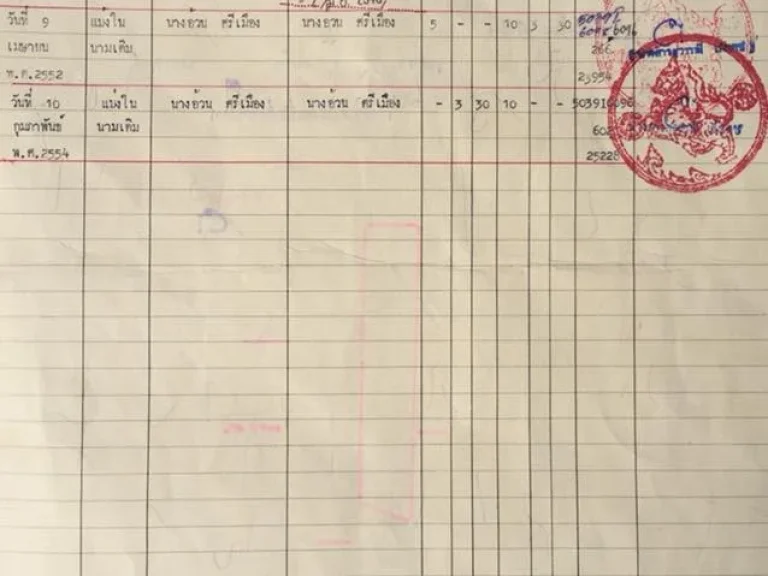 วันที่ 9 แบ่งใน นางอ้วน ศรีเมือง นางอ้วน ศรีเมือง 5 - - 10 3 30
เมษายน นามเดิม 266
พ.ศ.2552 23954
วันที่ 10 แบ่งใน นางอ้วน ศรีเมือง นางอ้วน ศรีเมือง - 3 30 10 - -
กุมภาพันธ์ นามเดิม 602
พ.ศ.2554 25228